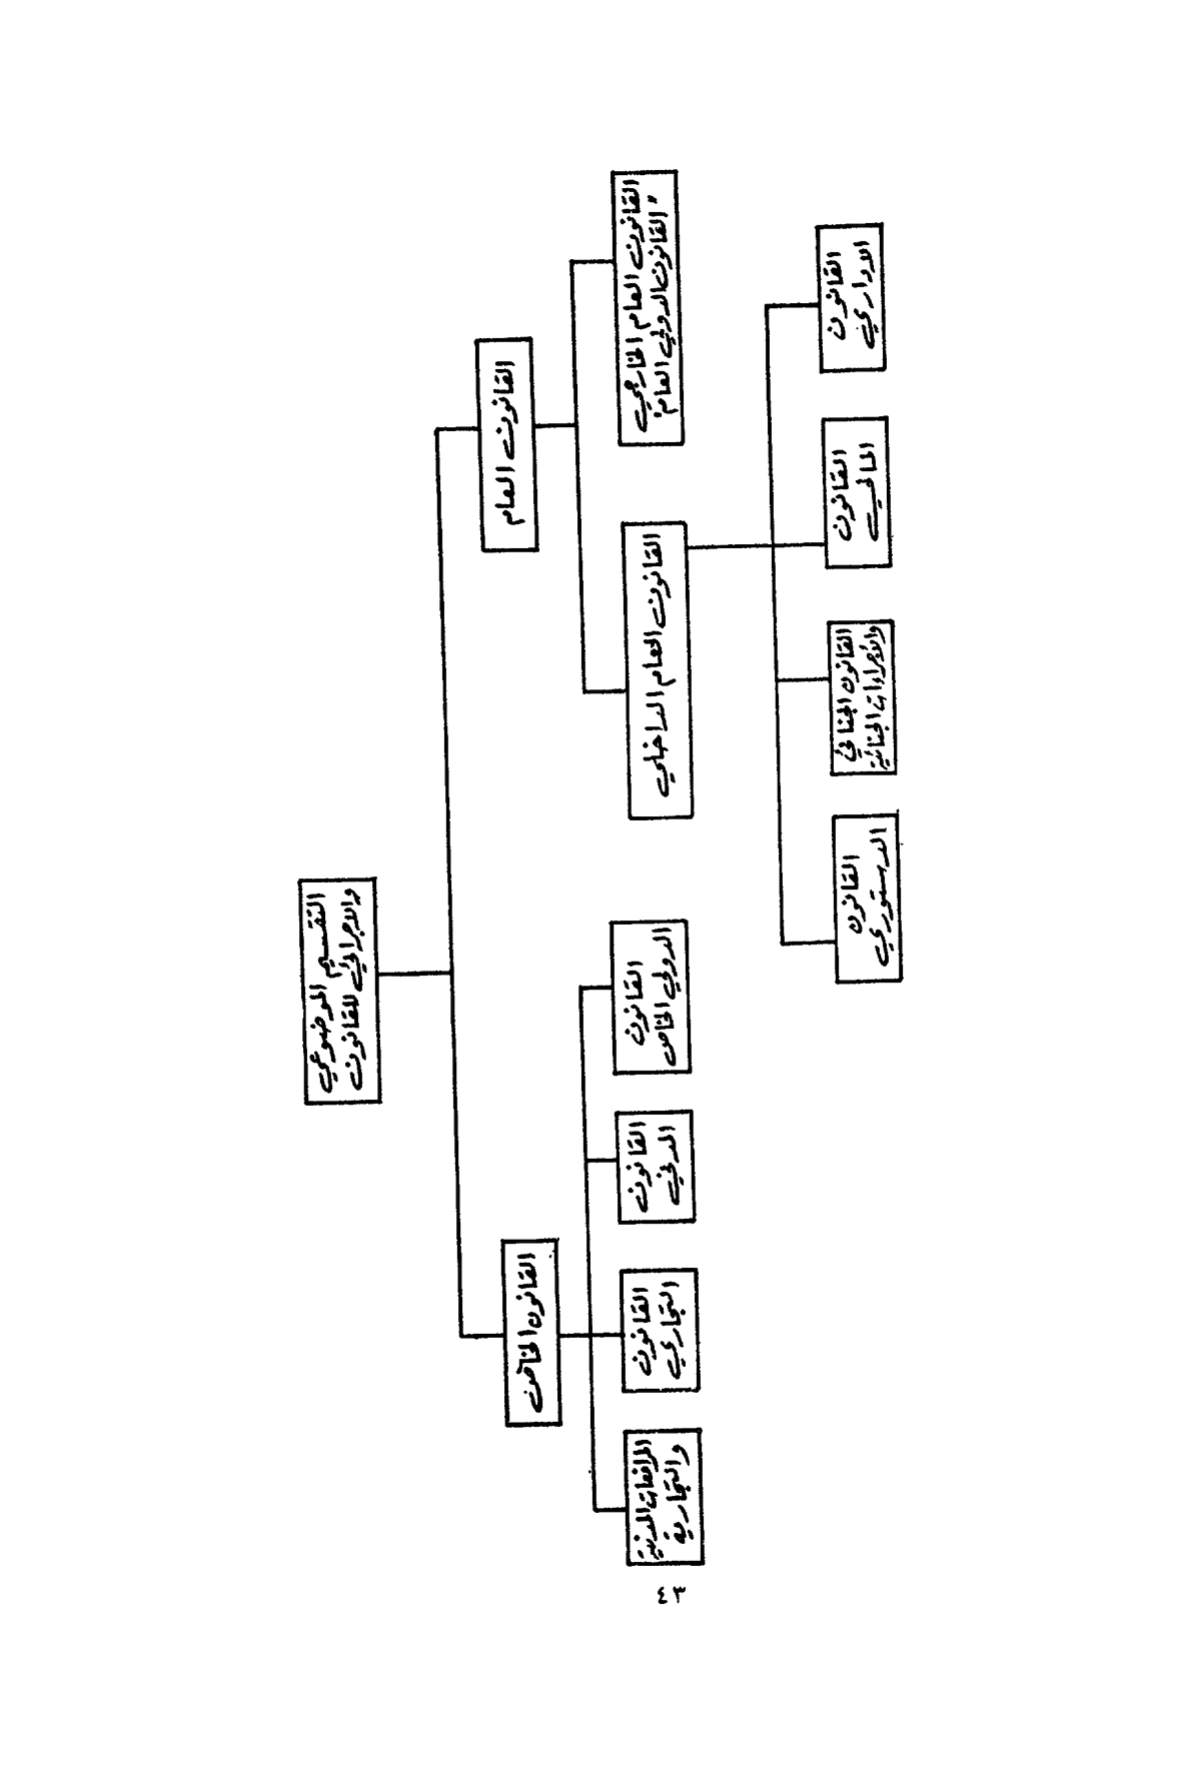 التقسيم الموضوعي
والاجرائي للقانون
القانون العام
القانون الخاص
القانون العام الخارجي
"القانون الدولي العام"
القانون العام الداخلي
القانون
الدولي الخاص
القانون
المدني
القانون
التجاري
المرافعات المدنية
والتجارية
القانون
الاداري
القانون
المالي
القانون الجنائي
والاجراءات الجنائية
القانون
الدستوري
٤٣